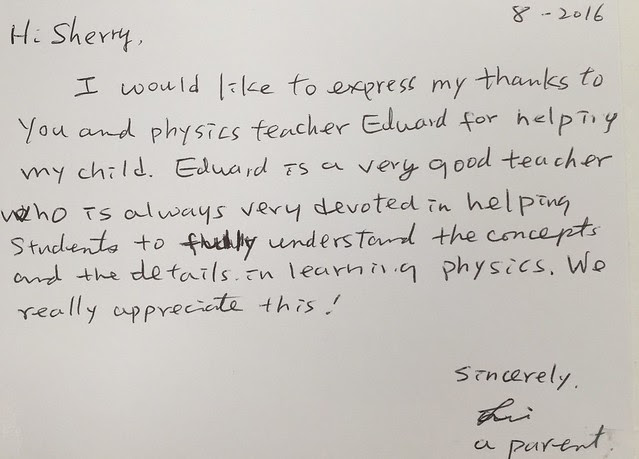 8 - 2016
Hi Sherry,
I would like to express my thanks to
You and physics teacher Eduard for helping
my child. Eduard is a very good teacher
who is always very devoted in helping
Students to fully understand the concepts
and the details in learning physics. We
really appreciate this!
Sincerely.
a parent.